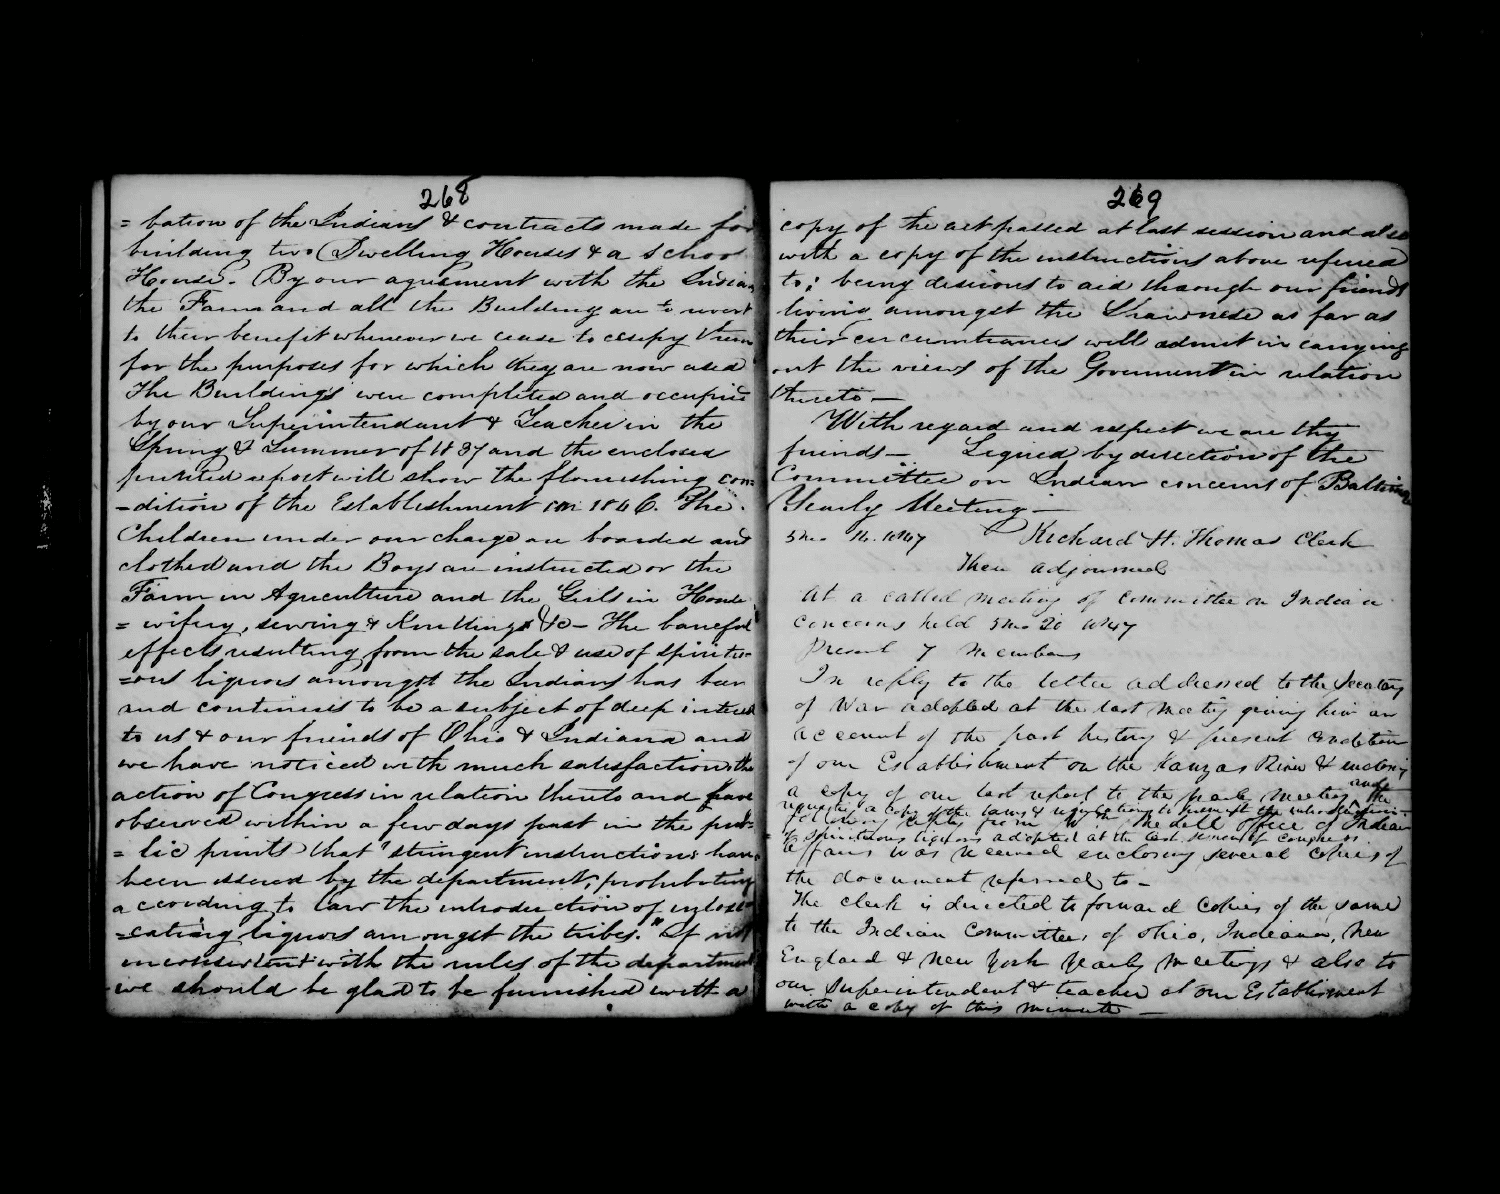 268
= bation of the Indians & contracts made for
building two Dwelling Houses & a School
House. By our agreement with the Indians
the Farm and all the Buildings are to revert
to their benefit whenever we cease to occupy them
for the purposes for which they are now used
The Buildings were completed and occupied
by our Superintendant & Teacher in the
Spring & Summer of 1837 and the enclosed
printed report will show the flourishing con=
=dition of the Establishment in 1846. The
Children under our charge are boarded and
clothed and the Boys are instructed on the
Farm in Agriculture and the Girls in House
= wifery, sewing & Knitting &c - The baneful
effects resulting from the sale & use of spiritu=
=ous liquors amongst the Indians has been
and continues to be a subject of deep interest
to us & our friends of Ohio & Indiana and
we have noticed with much satisfaction the
action of Congress in relation thereto and have
observed within a few days past in the pub=
= lic prints that "stringent instructions have
been issued by the department, prohibiting
according to law the introduction of intoxi=
=cating liquors amongst the tribes." If not
inconsistent with the rules of the department
we should be glad to be furnished with a
269
copy of the act passed at last session and also
with a copy of the instructions above refered
to; being desirous to aid through our friends
living amongst the Shawnese as far as
their circumstances will admit in carrying
out the views of the Government in relation
thereto -
With regard and respect we are thy
friends - Signed by direction of the
Committee on Indian concerns of Baltimore
Yearly Meeting -
5mo 1847 Richard H. Thomas Clerk
Then adjourned
At a called meeting of committee on Indian
concerns held 5mo 20 1847
Present 7 members
In reply to the letter addressed to the Secretary
of War adopted at the last meeting giving him an
account of the past history & present condition
of our Establishment on the Kanzas River & enclosing
a copy of our last report to the yearly meeting and
requesting a copy of the laws & regulations to prevent the introduction
of spirituous liquors adopted at the last session of congress
the following reply from W Medill office of Indian
affairs was received enclosing several copies of
the document referred to -
The clerk is directed to forward copies of the same
to the Indian Committees of Ohio, Indiana, New
England & New York Yearly Meetings & also to
our Superintendent & teacher at our Establishment
with a copy of this minute -